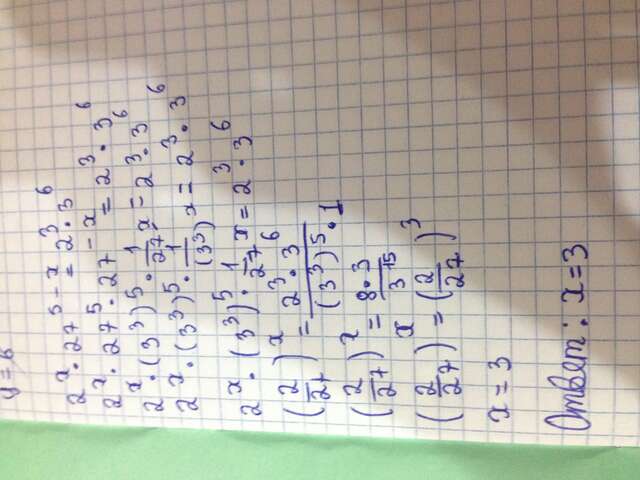 2ˣ · 27⁵⁻ˣ = 2³ · 3⁶
2ˣ · 27⁵ · 27⁻ˣ = 2³ · 3⁶
2ˣ · (3³)⁵ · 1/27ˣ = 2³ · 3⁶
2ˣ · (3³)⁵ · 1/(3³)ˣ = 2³ · 3⁶
2ˣ · (3³)⁵ · 1/27ˣ = 2³ · 3⁶
(2/27)ˣ = 2³ · 3⁶/(3³)⁵ · 1
(2/27)ˣ = 8 · 3/3¹⁵
(2/27)ˣ = (2/27)³
x = 3
Ответ: x=3